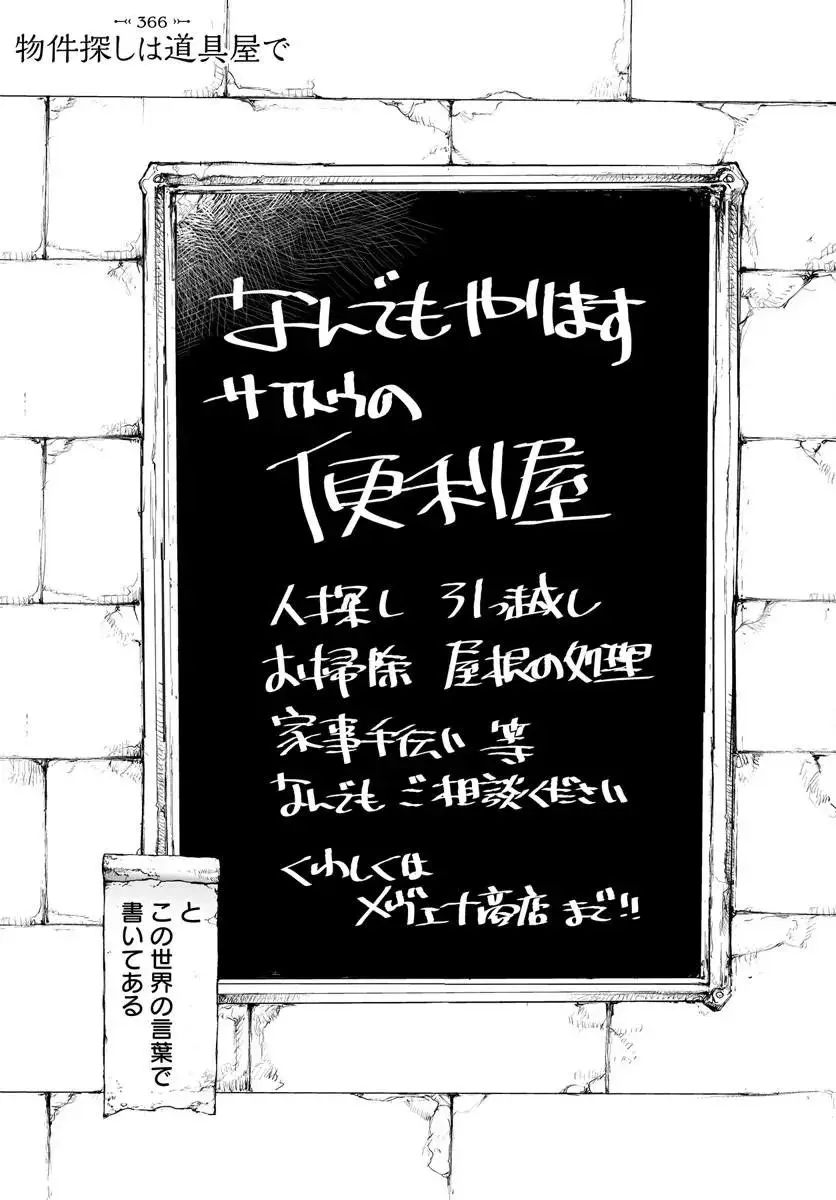 366
物件探しは道具屋で
なんでもやります
サイトウの
便利屋
人探し 引っ越し
お掃除 屋根の処理
家事手伝い 等
なんでも ご相談ください
くわしくは
メヴェナ商店 まで!!
と
この世界の言葉で
書いてある